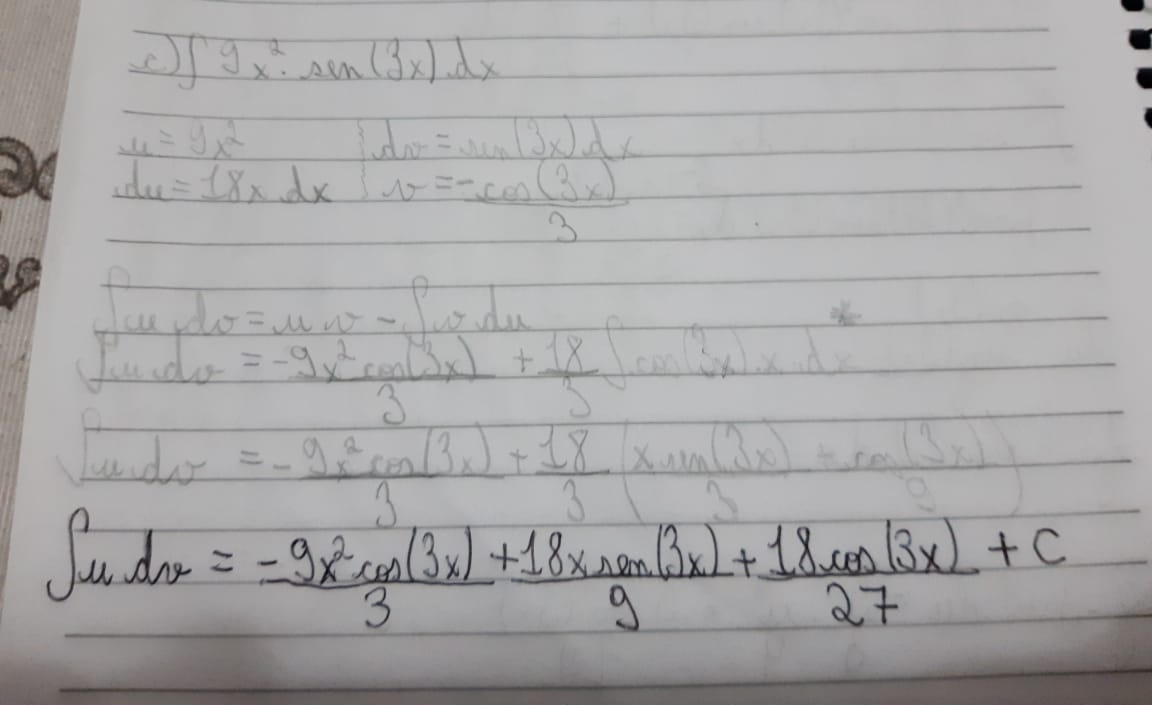 c) ∫ 9x². sen(3x) dx
u = 9x² dv = sen(3x) dx
du = 18x dx v = -cos(3x)/3
∫u dv = u v - ∫v du *
∫u dv = -9x² cos(3x)/3 + 18/3 ∫cos(3x).x.dx
∫u dv = -9x² cos(3x)/3 + 18/3 (x sen(3x)/3 + cos(3x)/9)
∫u dv = -9x² cos(3x)/3 + 18x sen(3x)/9 + 18 cos(3x)/27 + C